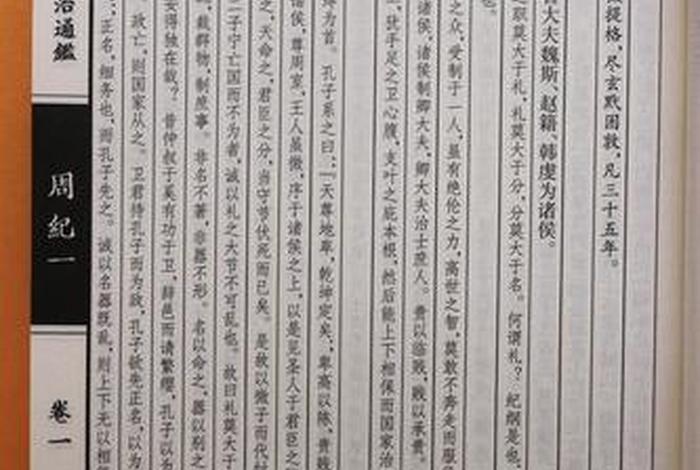 提格，尽玄黓困敦，凡三十五年。
大夫魏斯、赵籍、韩虔为诸侯。
之职莫大于礼，礼莫大于分，分莫大于名。何谓礼？纪纲是也
也。
之众，受制于一人，虽有绝伦之力，高世之智，莫敢不奔走而服
诸侯，诸侯制卿大夫，卿大夫治士庶人。贵以临贱，贱以承贵。
犹手足之卫心腹，支叶之庇本根，然后能上下相保而国家治
为首。孔子系之曰：“天尊地卑，乾坤定矣，卑高以陈，贵贱
诸侯，尊周室，王人虽微，序于诸侯之上，以是见圣人于君臣之
之，天命之，君臣之分，当守节伏死而已矣。是故以微子而代
二子宁亡国而不为者，诚以礼之大节不可乱也。故曰礼莫大于
，裁群物，制庶事。非名不著，非器不形。名以命之，器以别之
安得独在哉？昔仲叔于奚有功于卫，辞邑而请繁缨，孔子以为
。政亡，则国家从之。卫君待孔子而为政，孔子欲先正名，以为
；正名，细务也，而孔子先之。诚以名器既乱，则上下无以相
治通鑑
周纪一
卷一